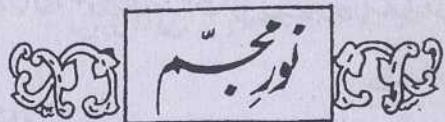 نورِ مجسّم